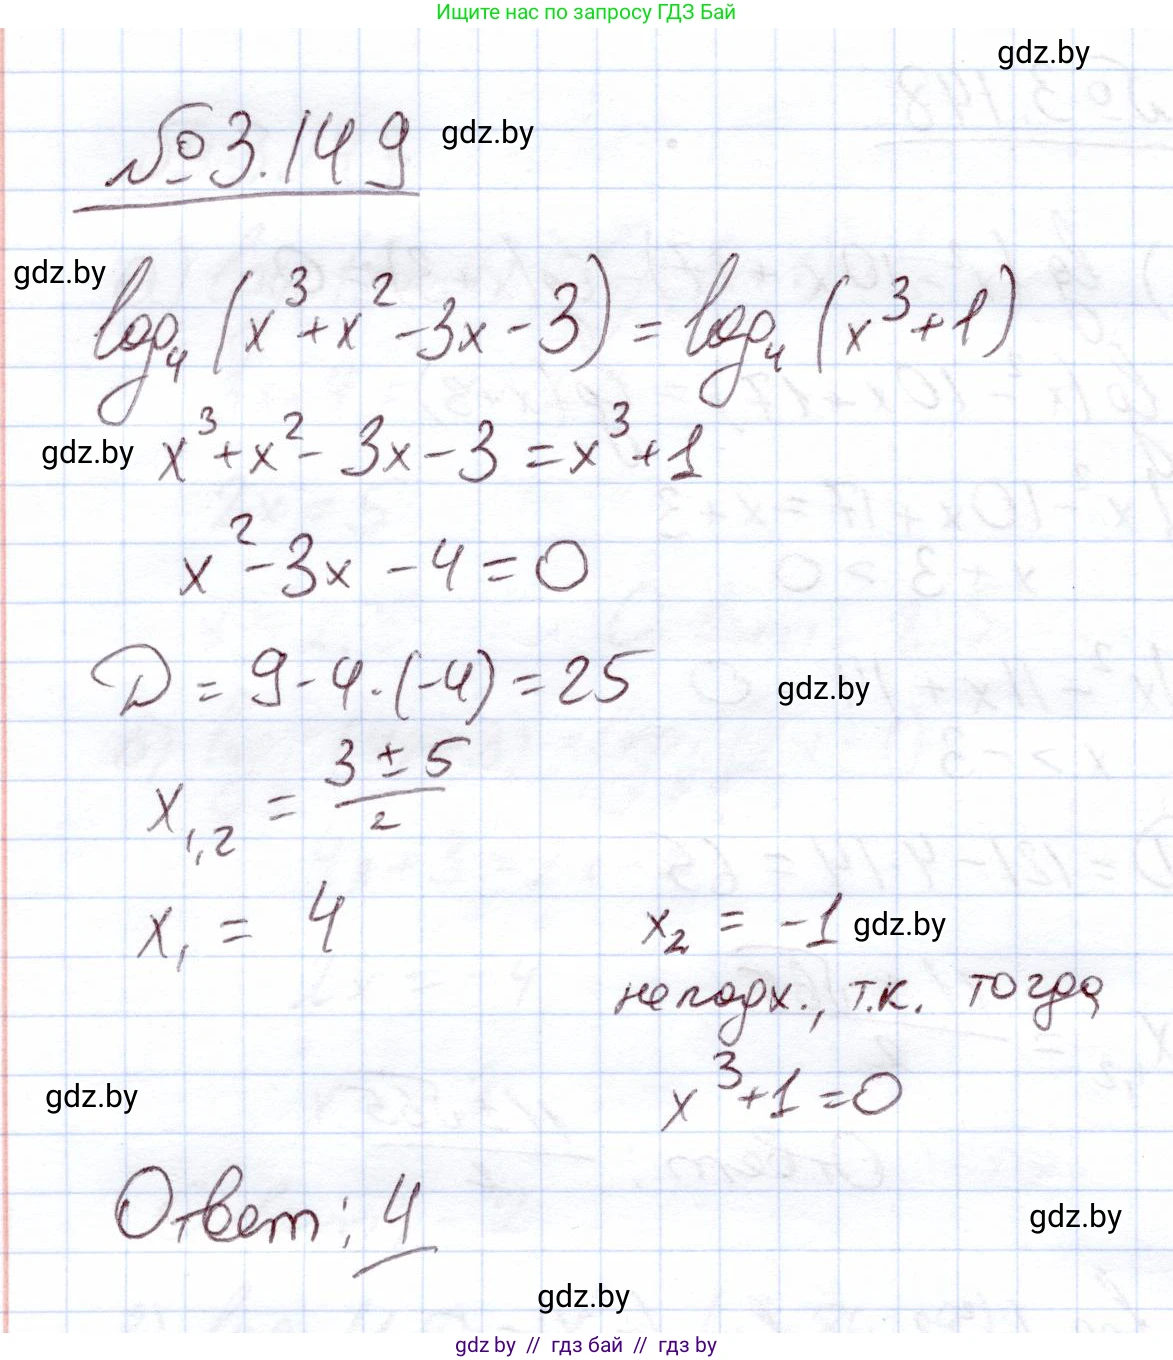 Ищите нас по запросу ГДЗ Бай
gdz.by
№3.149 gdz.by
gdz.by
log₄(x³+x²-3x-3)=log₄(x³+1)
gdz.by x³+x²-3x-3=x³+1
x²-3x-4=0
D=9-4·(-4)=25 gdz.by
x₁,₂ = (3±5)/2
x₁ = 4 x₂ = -1 gdz.by
не подх., т.к. тогда
gdz.by x³+1=0
Ответ: 4 gdz.by
gdz.by
gdz by // гдз бай // гдз by